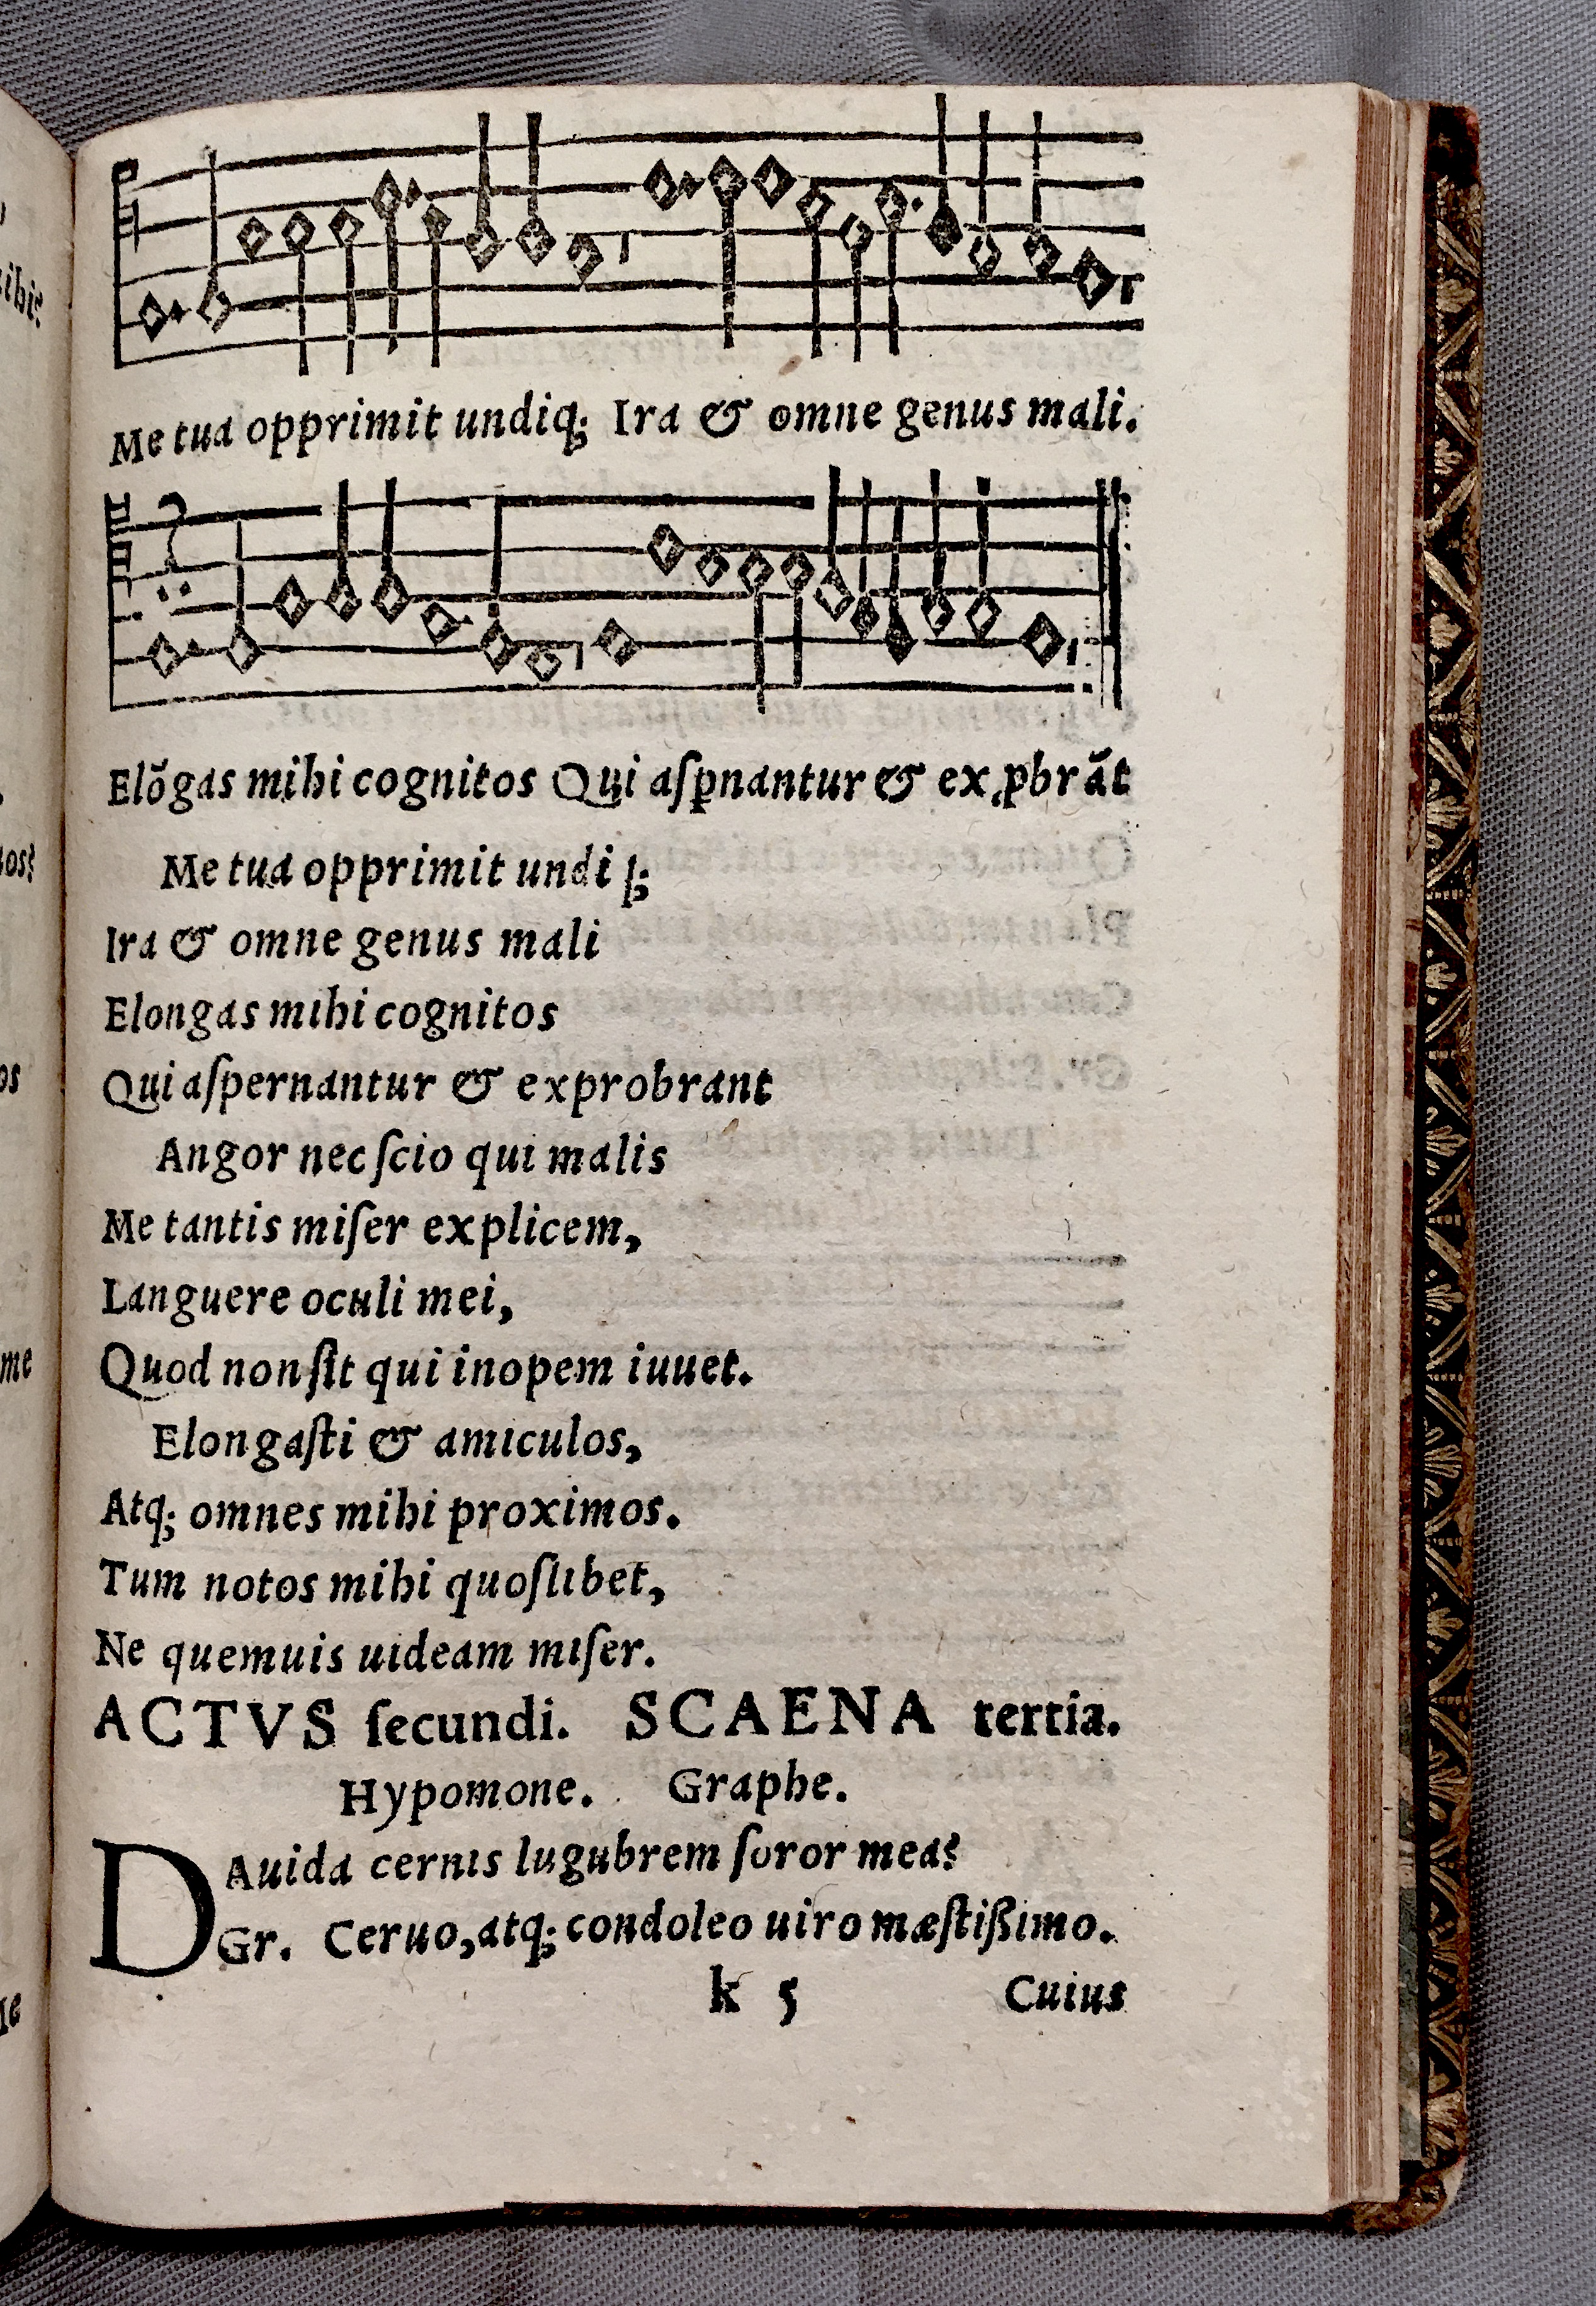 Me tua opprimit undiq; Ira & omne genus mali.
Elõgas mihi cognitos Qui aſꝑnantur & exꝓbrãt
Me tua opprimit undi ꝗ;
Ira & omne genus mali
Elongas mihi cognitos
Qui aſpernantur & exprobrant
Angor nec ſcio qui malis
Me tantis miſer explicem,
Languere oculi mei,
Quod non ſit qui inopem iuuet.
Elongaſti & amiculos,
Atq; omnes mihi proximos.
Tum notos mihi quoſlibet,
Ne quemuis uideam miſer.
ACTVS ſecundi. SCAENA tertia.
Hypomone. Graphe.
DAuida cernis lugubrem ſoror mea?
Gr. Ceruo, atq; condoleo uiro mæſtißimo.
k 5 Cuius